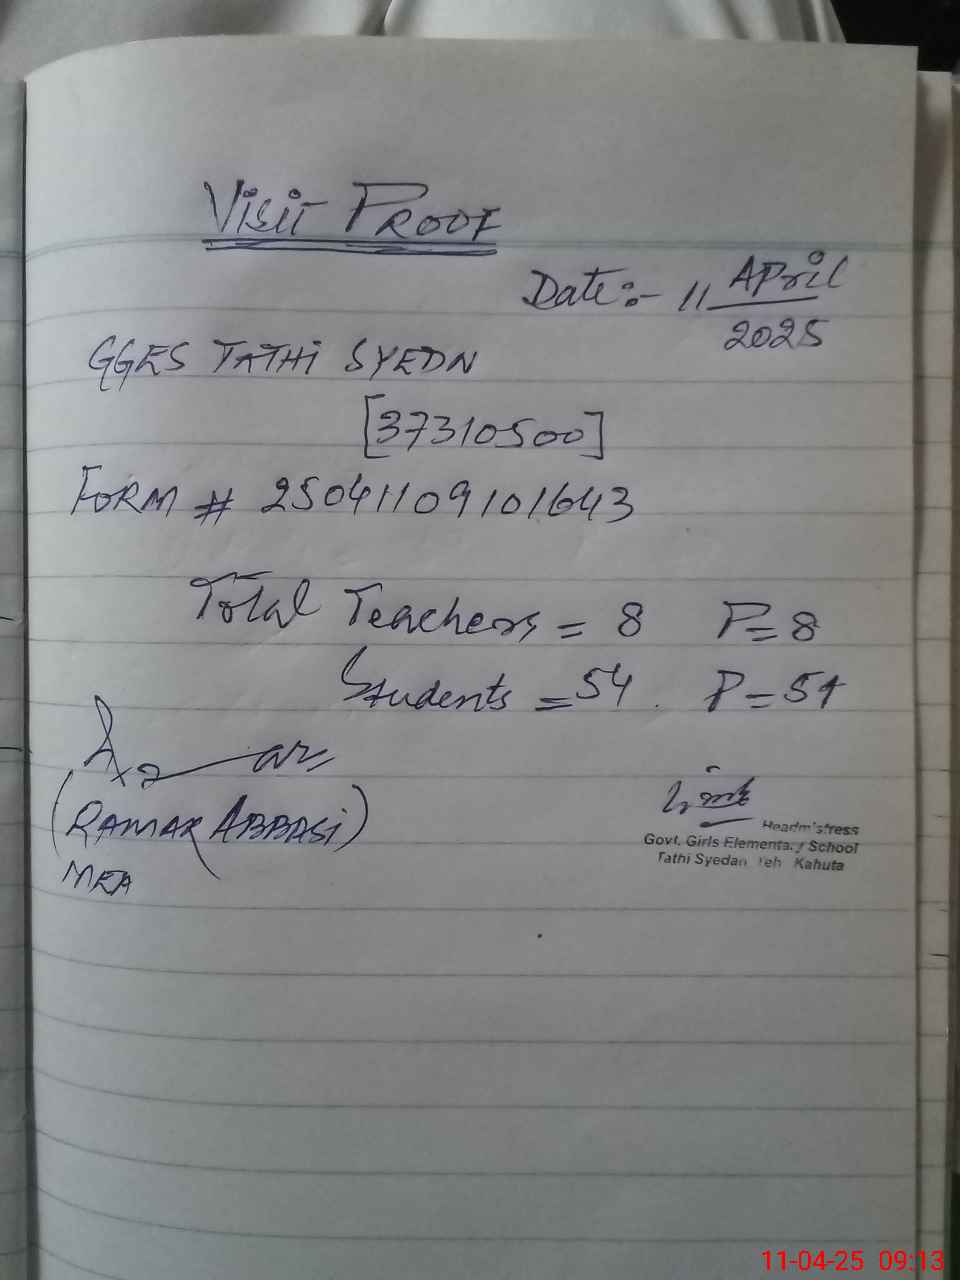 Visit PROOF
Date:- 11 April
2025
GGES TATHI SYEDN
[37310500]
FORM # 25041109101643
Total Teachers = 8 P=8
Students =54 P=54
(RAMAR ABBASI)
MEA
Headmistress
Govt. Girls Elementary School
Tathi Syedan Teh Kahuta
11-04-25 09:13